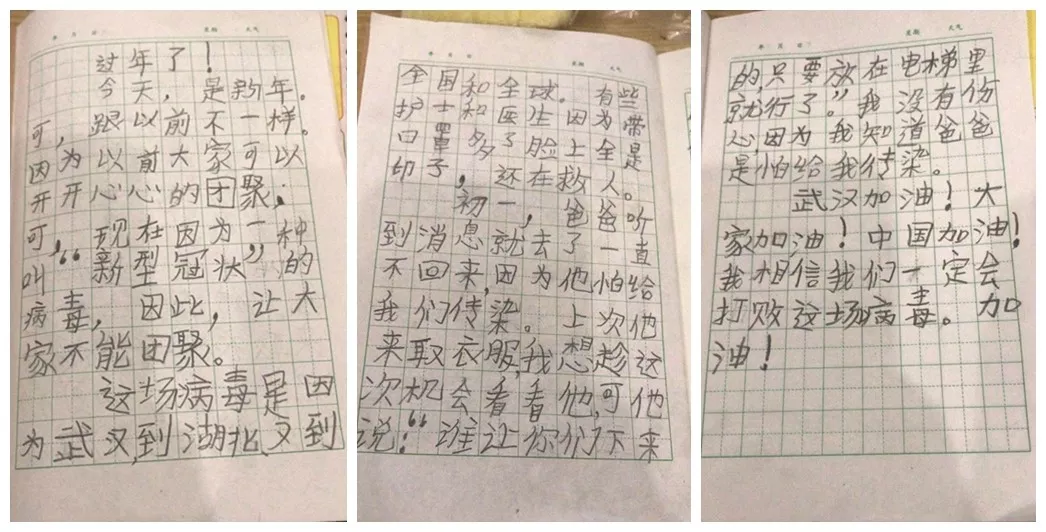 年 月 日 星期 天气
过年了！
今天，是新年。
可，跟以前不一样。
因为以前大家可以
开开心心的团聚；
可，现在因为一种
叫“新型冠状”的
病毒，因此，让大
家不能团聚。
这场病毒是因
为武汉,到湖北,又到
年 月 日 星期 天气
全国和全球。有些
护士和医生因为带
口罩多了脸上全是
印子，还在救人。
初一，爸爸听
到消息就去了一直
不回来,因为他怕给
我们传染。上次他
来取衣服,我想趁这
次机会看看他,可他
说：“谁让你们下来
年 月 日 星期 天气
的,只要放在电梯里
就行了”。我没有伤
心,因为我知道爸爸
是怕给我传染。
武汉加油！大
家加油！中国加油！
我相信我们一定会
打败这场病毒。加
油！